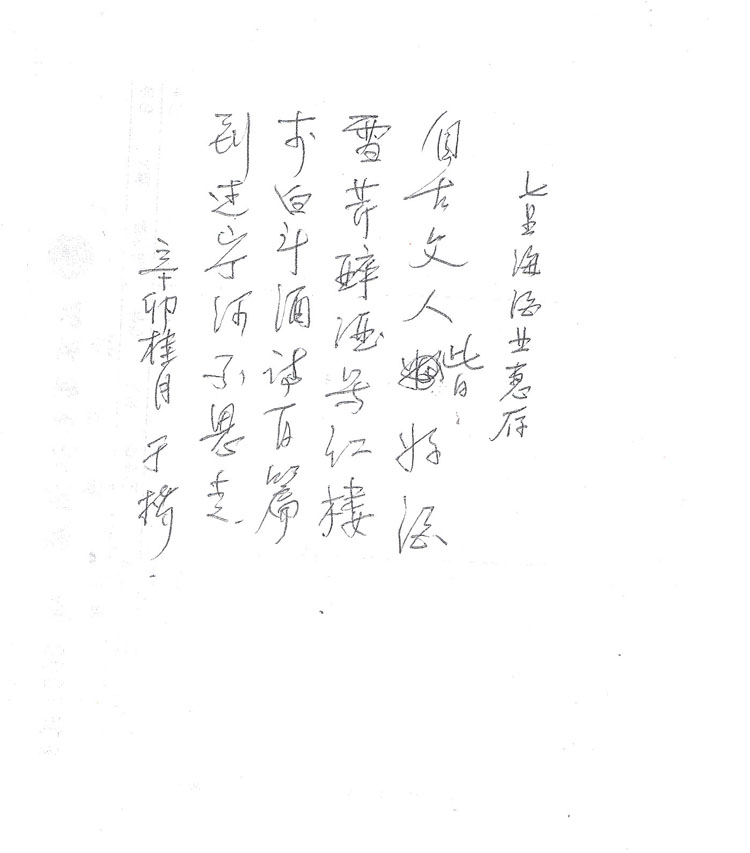 七星海酒业惠存
自古文人皆好酒
雪芹醉酒著红楼
李白斗酒诗百篇
到建宁河不思走
辛卯桂月 于